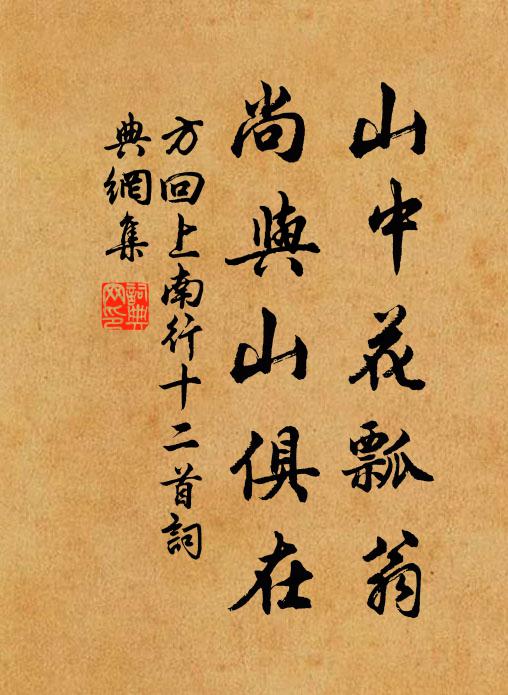 山中花瓢翁
尚與山俱在
方回上南行十二首詞
典網集
詞典網印